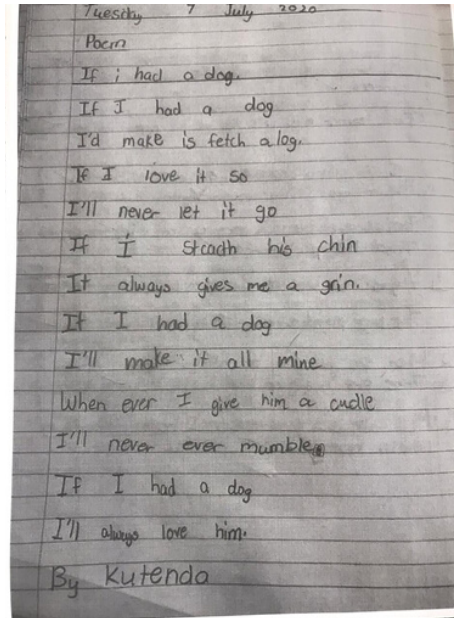 Tuesday 7 July 2020
Poem
If i had a dog.
If I had a dog
I'd make is fetch a log.
If I love it so
I'll never let it go
If I Stcadth his chin
It always gives me a grin.
If I had a dog
I'll make it all mine
When ever I give him a cudle
I'll never ever mumble
If I had a dog
I'll always love him.
By Kutenda